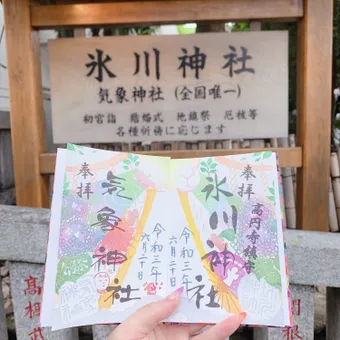 氷川神社
気象神社（全国唯一）
初宮詣　結婚式　地鎮祭　厄祓等
各種祈祷に応じます
奉拝
高円寺鎮守
氷川神社
令和三年
六月二十日
奉拝
気象神社
令和三年
六月二十日
高